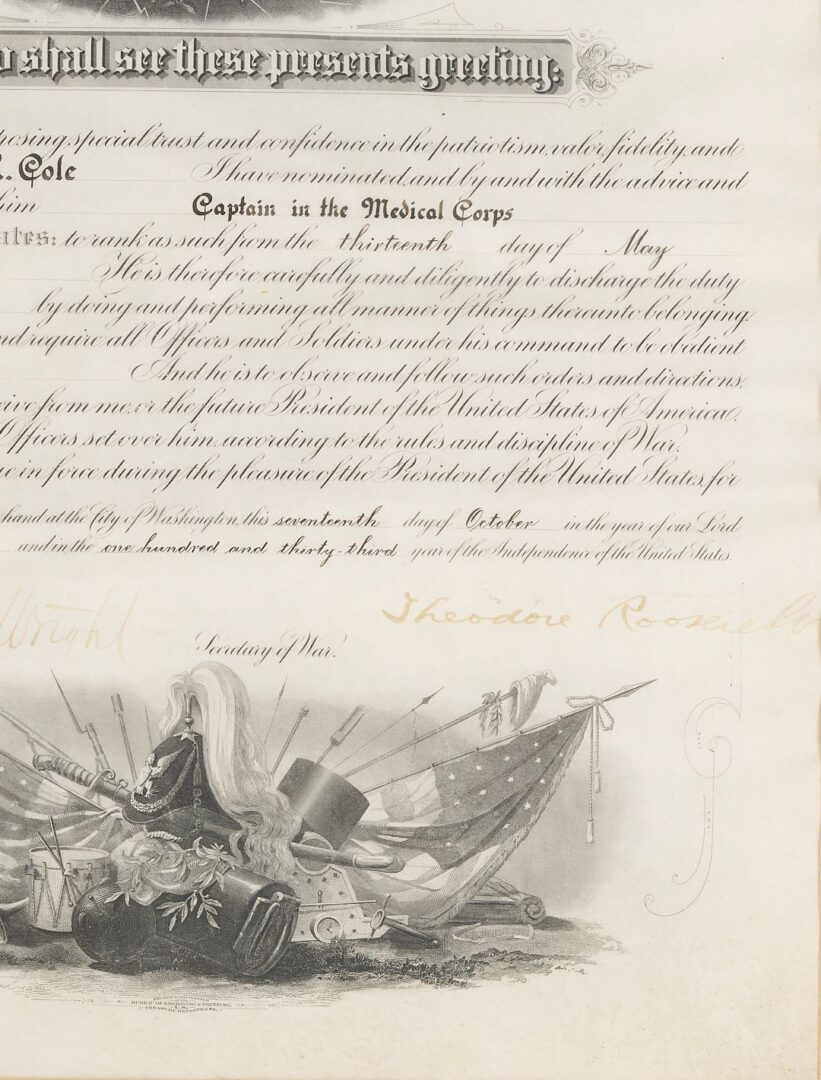 o shall see these presents greeting:
posing special trust and confidence in the patriotism, valor, fidelity, and
. Cole I have nominated, and by and with the advice and
him Captain in the Medical Corps
ates: to rank as such from the thirteenth day of May
He is therefore carefully and diligently to discharge the duty
by doing and performing all manner of things thereunto belonging.
nd require all Officers and Soldiers under his command to be obedient
And he is to observe and follow such orders and directions,
eive from me, or the future President of the United States of America,
Officers set over him, according to the rules and discipline of War.
ue in force during the pleasure of the President of the United States, for
hand at the City of Washington, this seventeenth day of October in the year of our Lord
and in the one hundred and thirty-third year of the Independence of the United States.
Theodore Roosevelt
Wright
Secretary of War.
BUREAU OF ENGRAVING & PRINTING,
TREASURY DEPARTMENT.